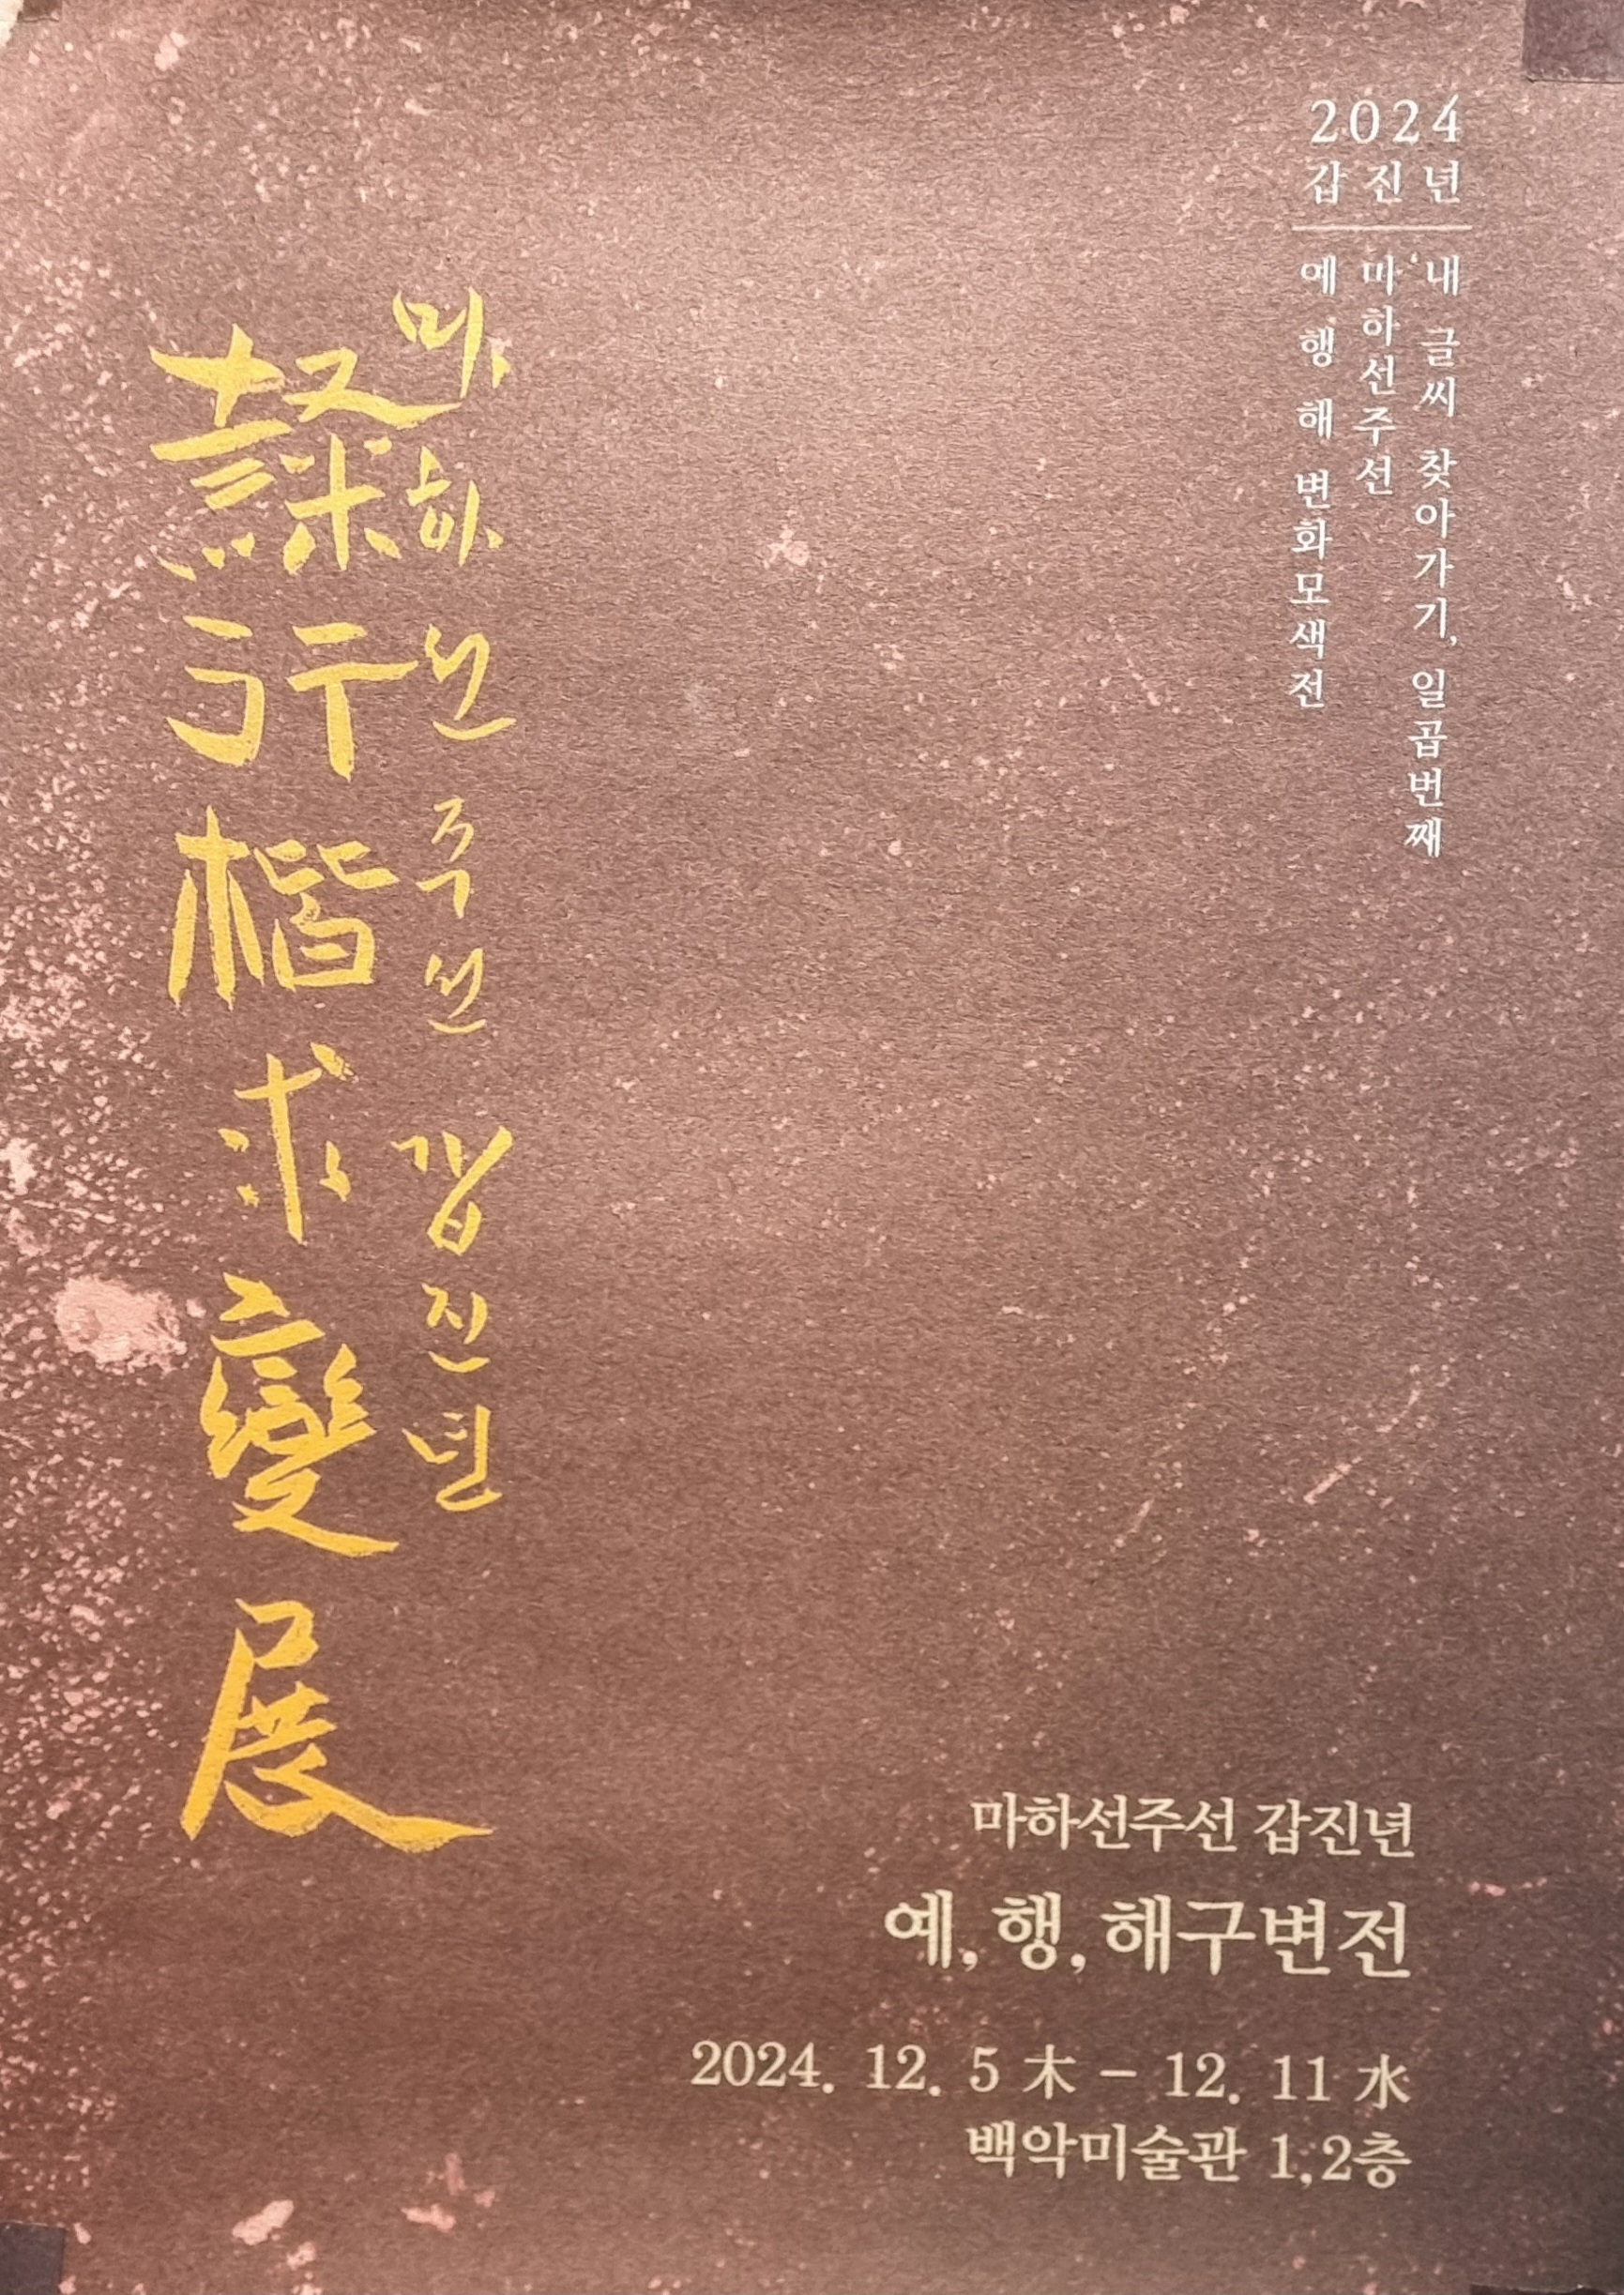 2024
갑진년
'내 글씨 찾아가기, 일곱번째
마하선주선
예 행 해 변화모색전
마하선주선 갑진년
隸行楷求變展
마하선주선 갑진년
예, 행, 해구변전
2024. 12. 5 木 - 12. 11 水
백악미술관 1,2층